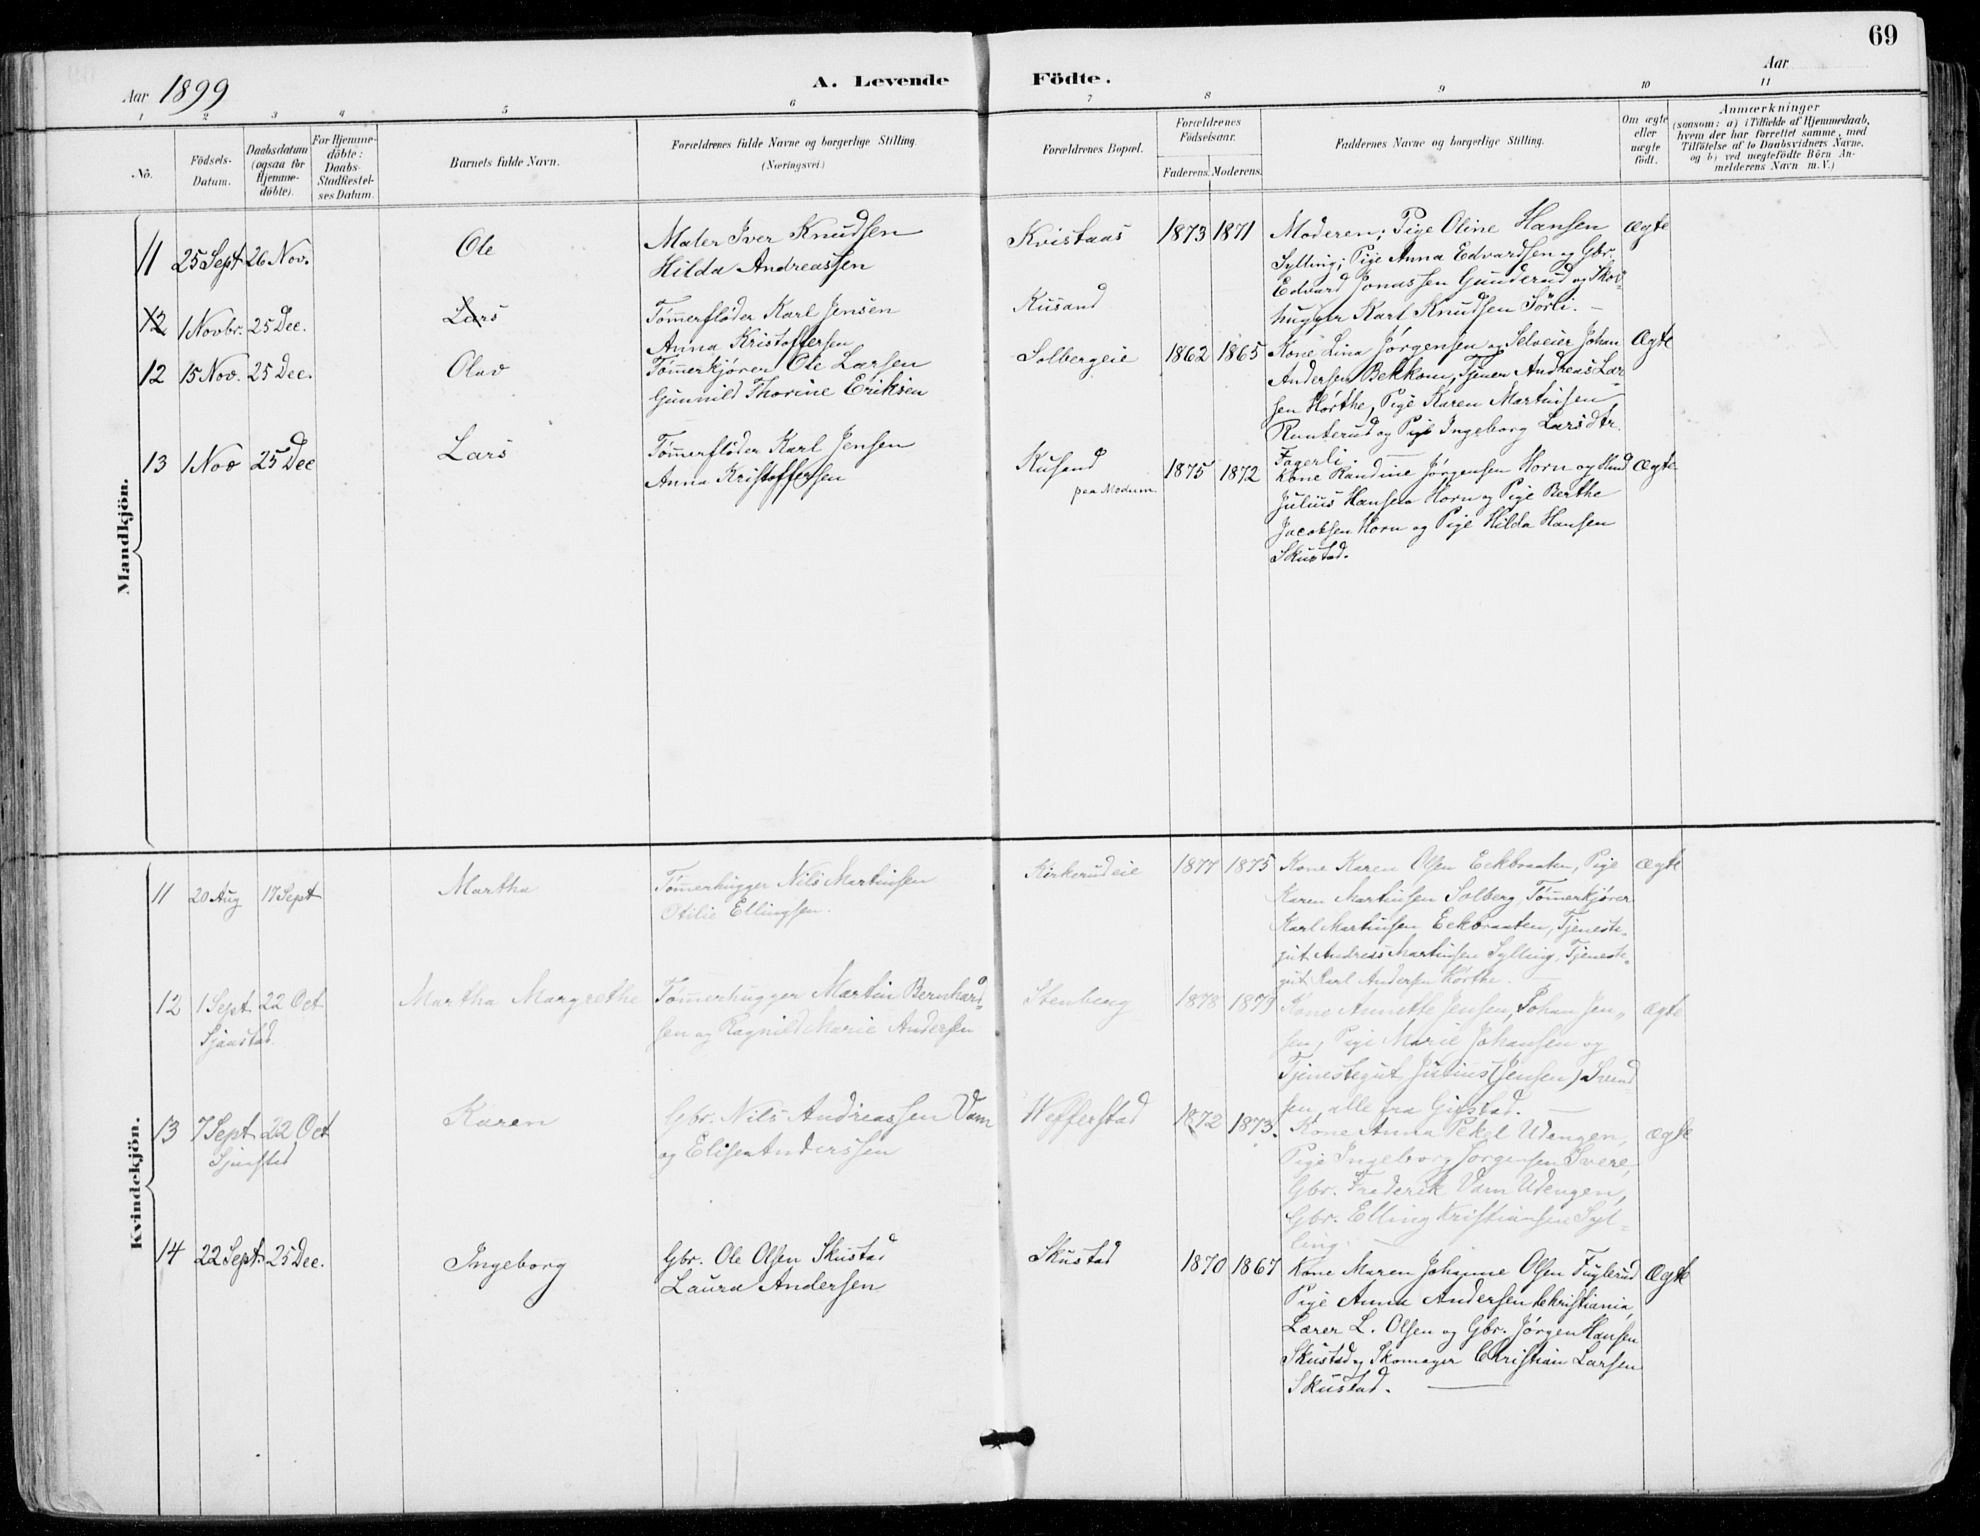 69
Aar 1899
A. Levende Födte.
Aar
1 2 3 4 5 6 7 8 9 10 11
Nô.
Födsels-Datum.
Daabsdatum (ogsaa for Hjemme-döbte).
For Hjemme-döbte: Daabs-Stadfæstel-ses Datum.
Barnets fulde Navn.
Forældrenes fulde Navne og borgerlige Stilling. (Næringsvei)
Forældrenes Bopæl.
Forældrenes Födselsaar.
Faderens. Moderens.
Faddernes Navne og borgerlige Stilling.
Om ægte eller uægte födt.
Anmærkninger
(saasom: a) i Tilfælde af Hjemmedaab,
hvem der har forrettet samme, med
Tilföielse af to Daabsvidners Navne,
og b) ved uegtefödte Börn An-
melderens Navn m.V.)
Mandkjön.
11 25 Sept 26 Nov. Ole
Maler Iver Knudsen
Hilda Andreassen
Kvistaas 1873 1871
Moderen; Pige Oline Hansen
Sylling; Pige Anna Edvardsen og Gbr.
Edvard Jonassen Gunderud og Skov-
hugger Karl Knudsen Sörli. —
Ægte
12 1 Novbr. 25 Dec. Lars
Tømmerfløder Karl Jensen
Anna Kristoffersen
Kusand
12 15 Nov. 25 Dec. Olav
Tømmerkjører Ole Larsen
Gunnild Thorine Eriksen
Solbergeie 1862 1865
Kone Lina Jörgensen og Selveier Johan
Andersen Bekkom, Tjener Andreas Lar-
sen Hörthe, Pige Karen Martinsen
Runterud og Pige Ingeborg Larsdtr.
Fagerli. —
Ægte
13 1 Nov 25 Dec Lars
Tømmerfløder Karl Jensen
Anna Kristoffersen
Kusand
paa Modum. 1875 1872
Kone Randine Jørgensen Horn og Hmd
Julius Hansen Horn og Pige Berthe
Jacobsen Horn og Pige Hilda Hansen
Skustad.
Ægte
Kvindekjön.
11 20 Aug 17 Sept Martha
Tømmerhugger Nils Martinsen
Otilie Ellingsen.
Kirkerudeie 1877 1875
Kone Karen Olsen Eekbraaten, Pige
Karen Martinsen Solberg, Tømmerkjører
Karl Martinsen Eekbraaten, Tjeneste-
gut Andreas Martinsen Sylling, Tjeneste-
gut Karl Andersen Hörthe.
Ægte
12 1 Sept 22 Oct
Sjaastad.
Martha Margrethe
Tømmerhugger Martin Bernhard-
sen og Ragnild Marie Andersen
Stenberg 1878 1879
Kone Annethe Jensen, Johan Jen-
sen, Pige Marie Johansen og
Tjenestegut Julius (Jensen) Svend
sen, alle fra Gifstad. —
Ægte
13 7 Sept 22 Oct
Sjaastad
Karen
Gbr. Nils Andreassen Vam
og Elise Anderssen
Wefferstad 1872 1873.
Kone Anna Pekel Udengen,
Pige Ingeborg Jorgensen Svere,
Gbr. Frederik Vam Udengen,
Gbr. Elling Kristiansen Syl-
ling.
Ægte
14 22 Sept. 25 Dec. Ingeborg
Gbr. Ole Olsen Skustad
Laura Andersen
Skustad 1870 1867
Kone Maren Johanne Olsen Fuglerud
Pige Anna Andersen, Kristiania,
Lærer L. Olsen og Gbr. Jörgen Hansen
Skustad og Skomager Christian Larsen
Skustad. —
Ægte